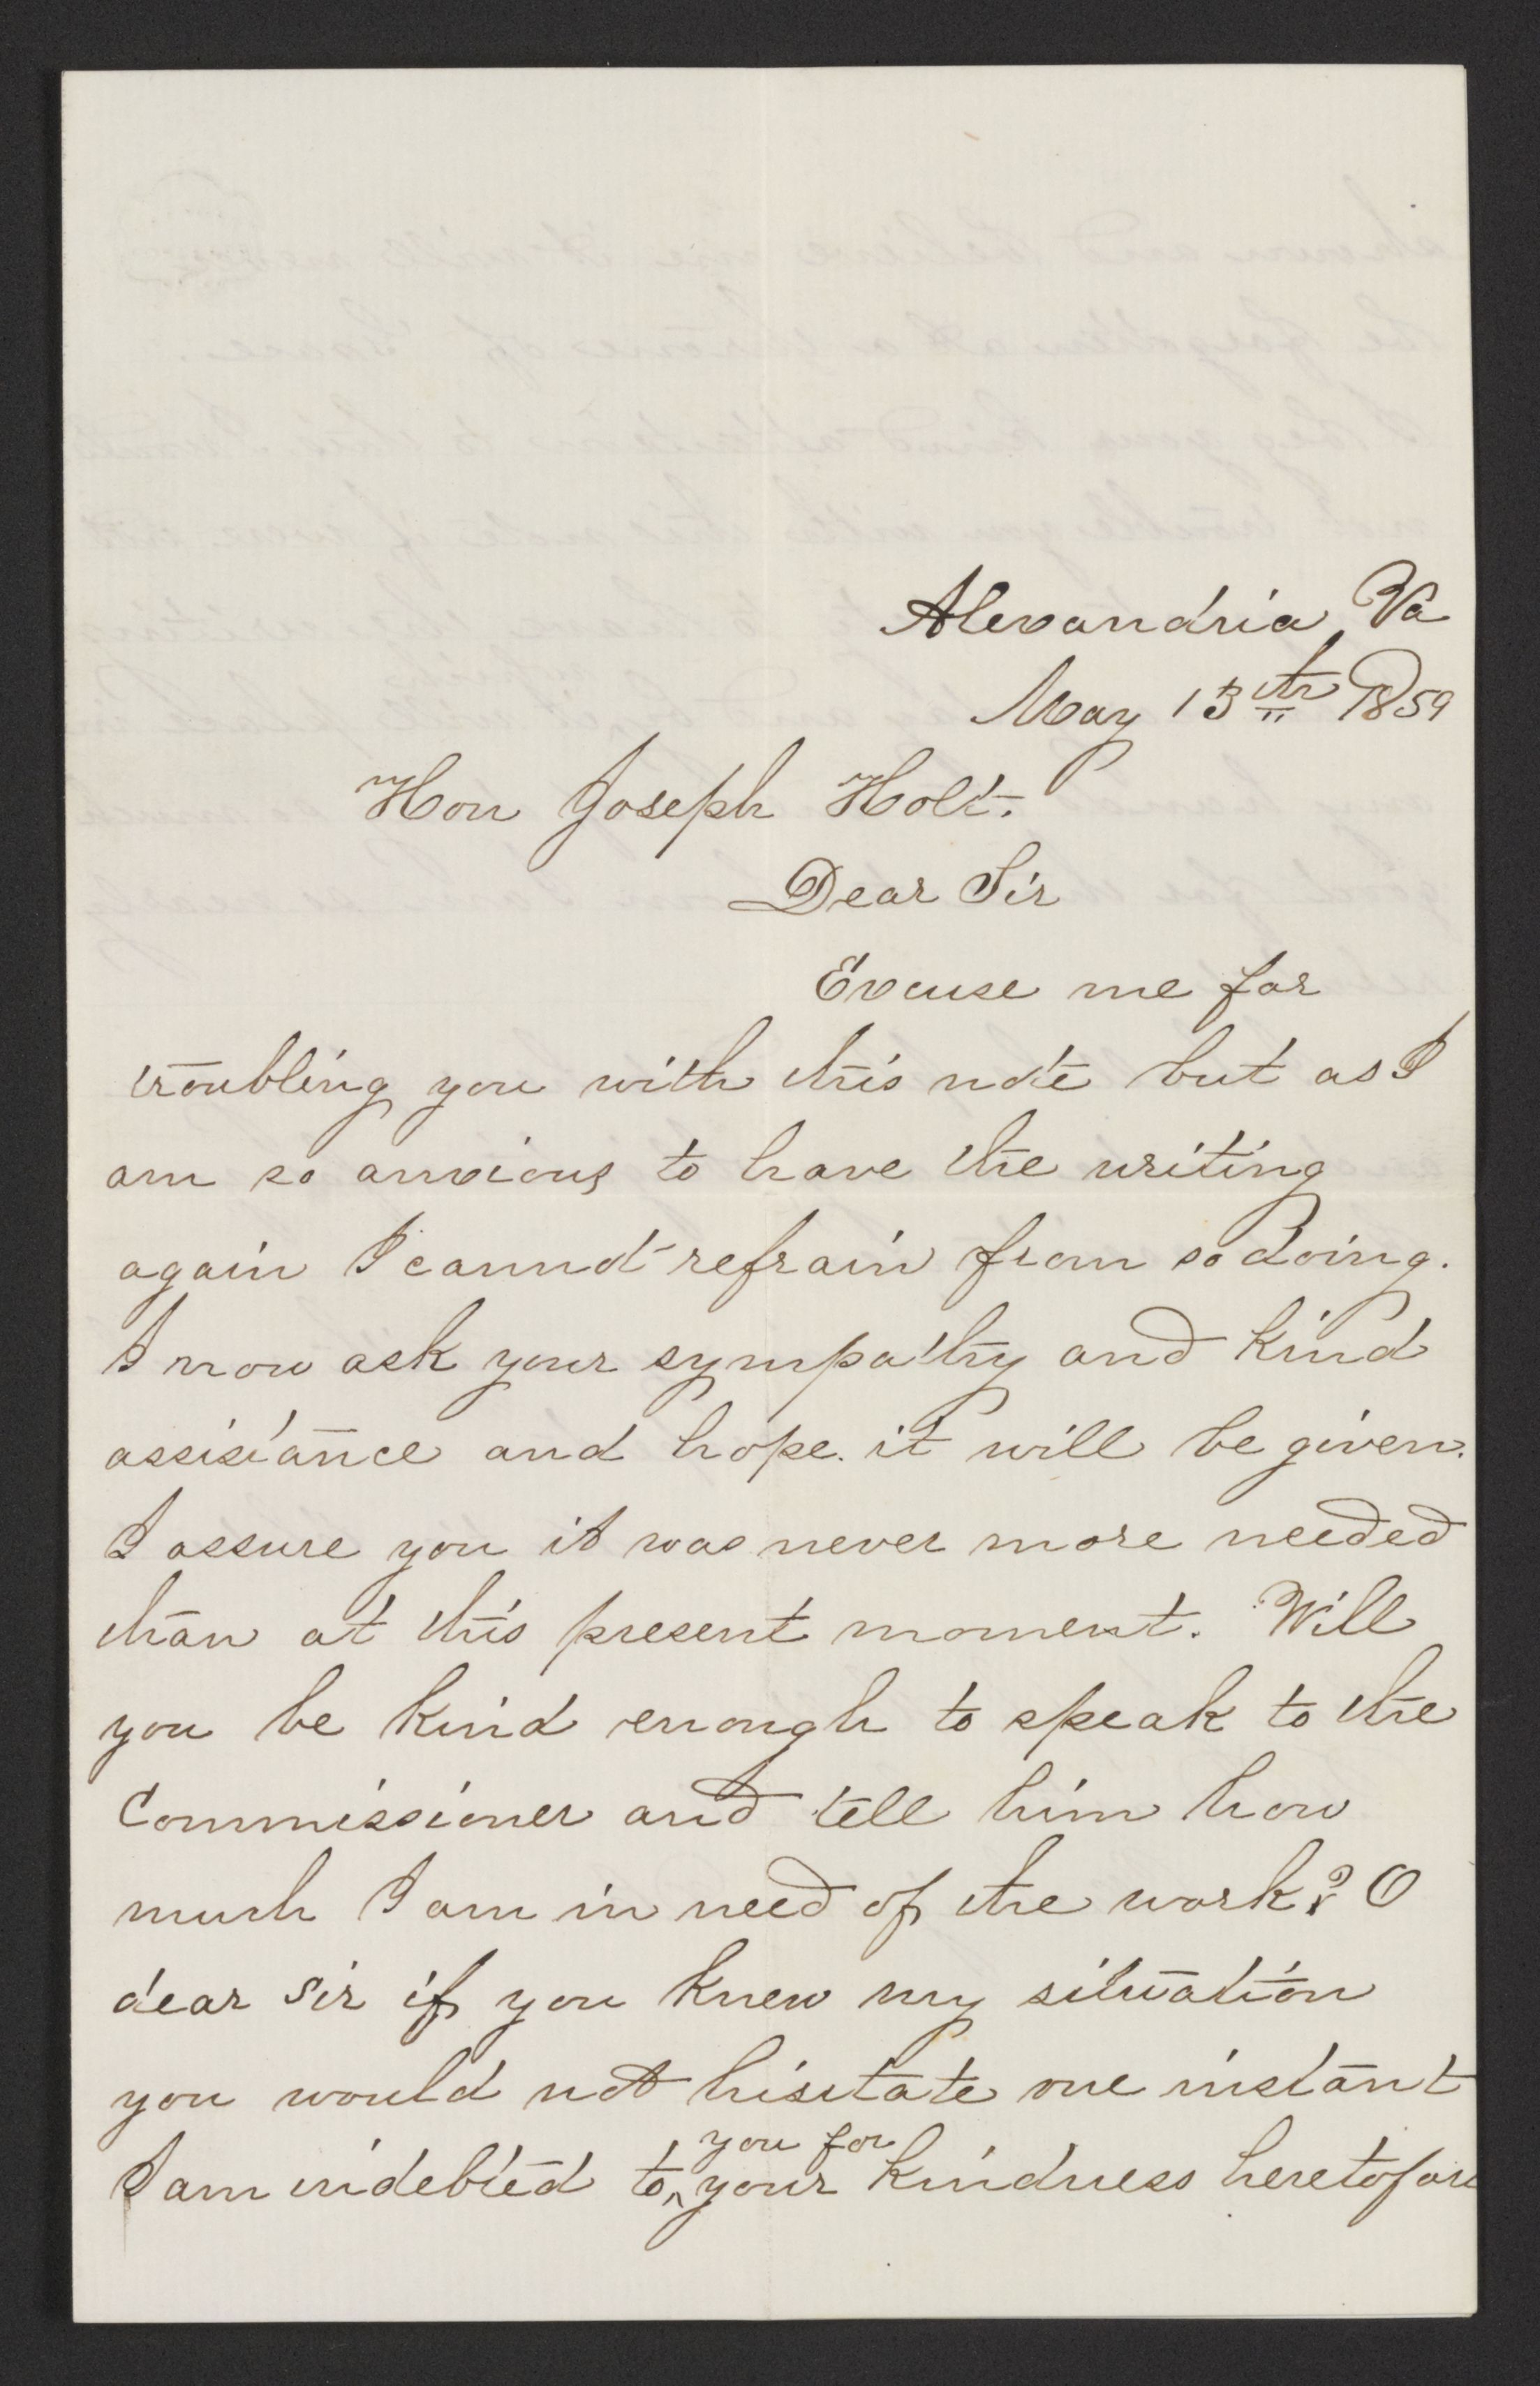 Alexandria Va
May 13th 1859
Hon Joseph Holt.
Dear Sir
Excuse me for
troubling you with this note but as I
am so anxious to have the writing
again I cannot refrain from so doing.
I now ask your sympathy and kind
assistance and hope. it will be given.
I assure you it was never more needed
than at this present moment. Will
you be kind enough to speak to the
Commissioner and tell him how
much I am in need of the work? O
dear Sir if you knew my situation
you would not hisitate one instant
you for
I am indebted to ^ your kindness heretofore